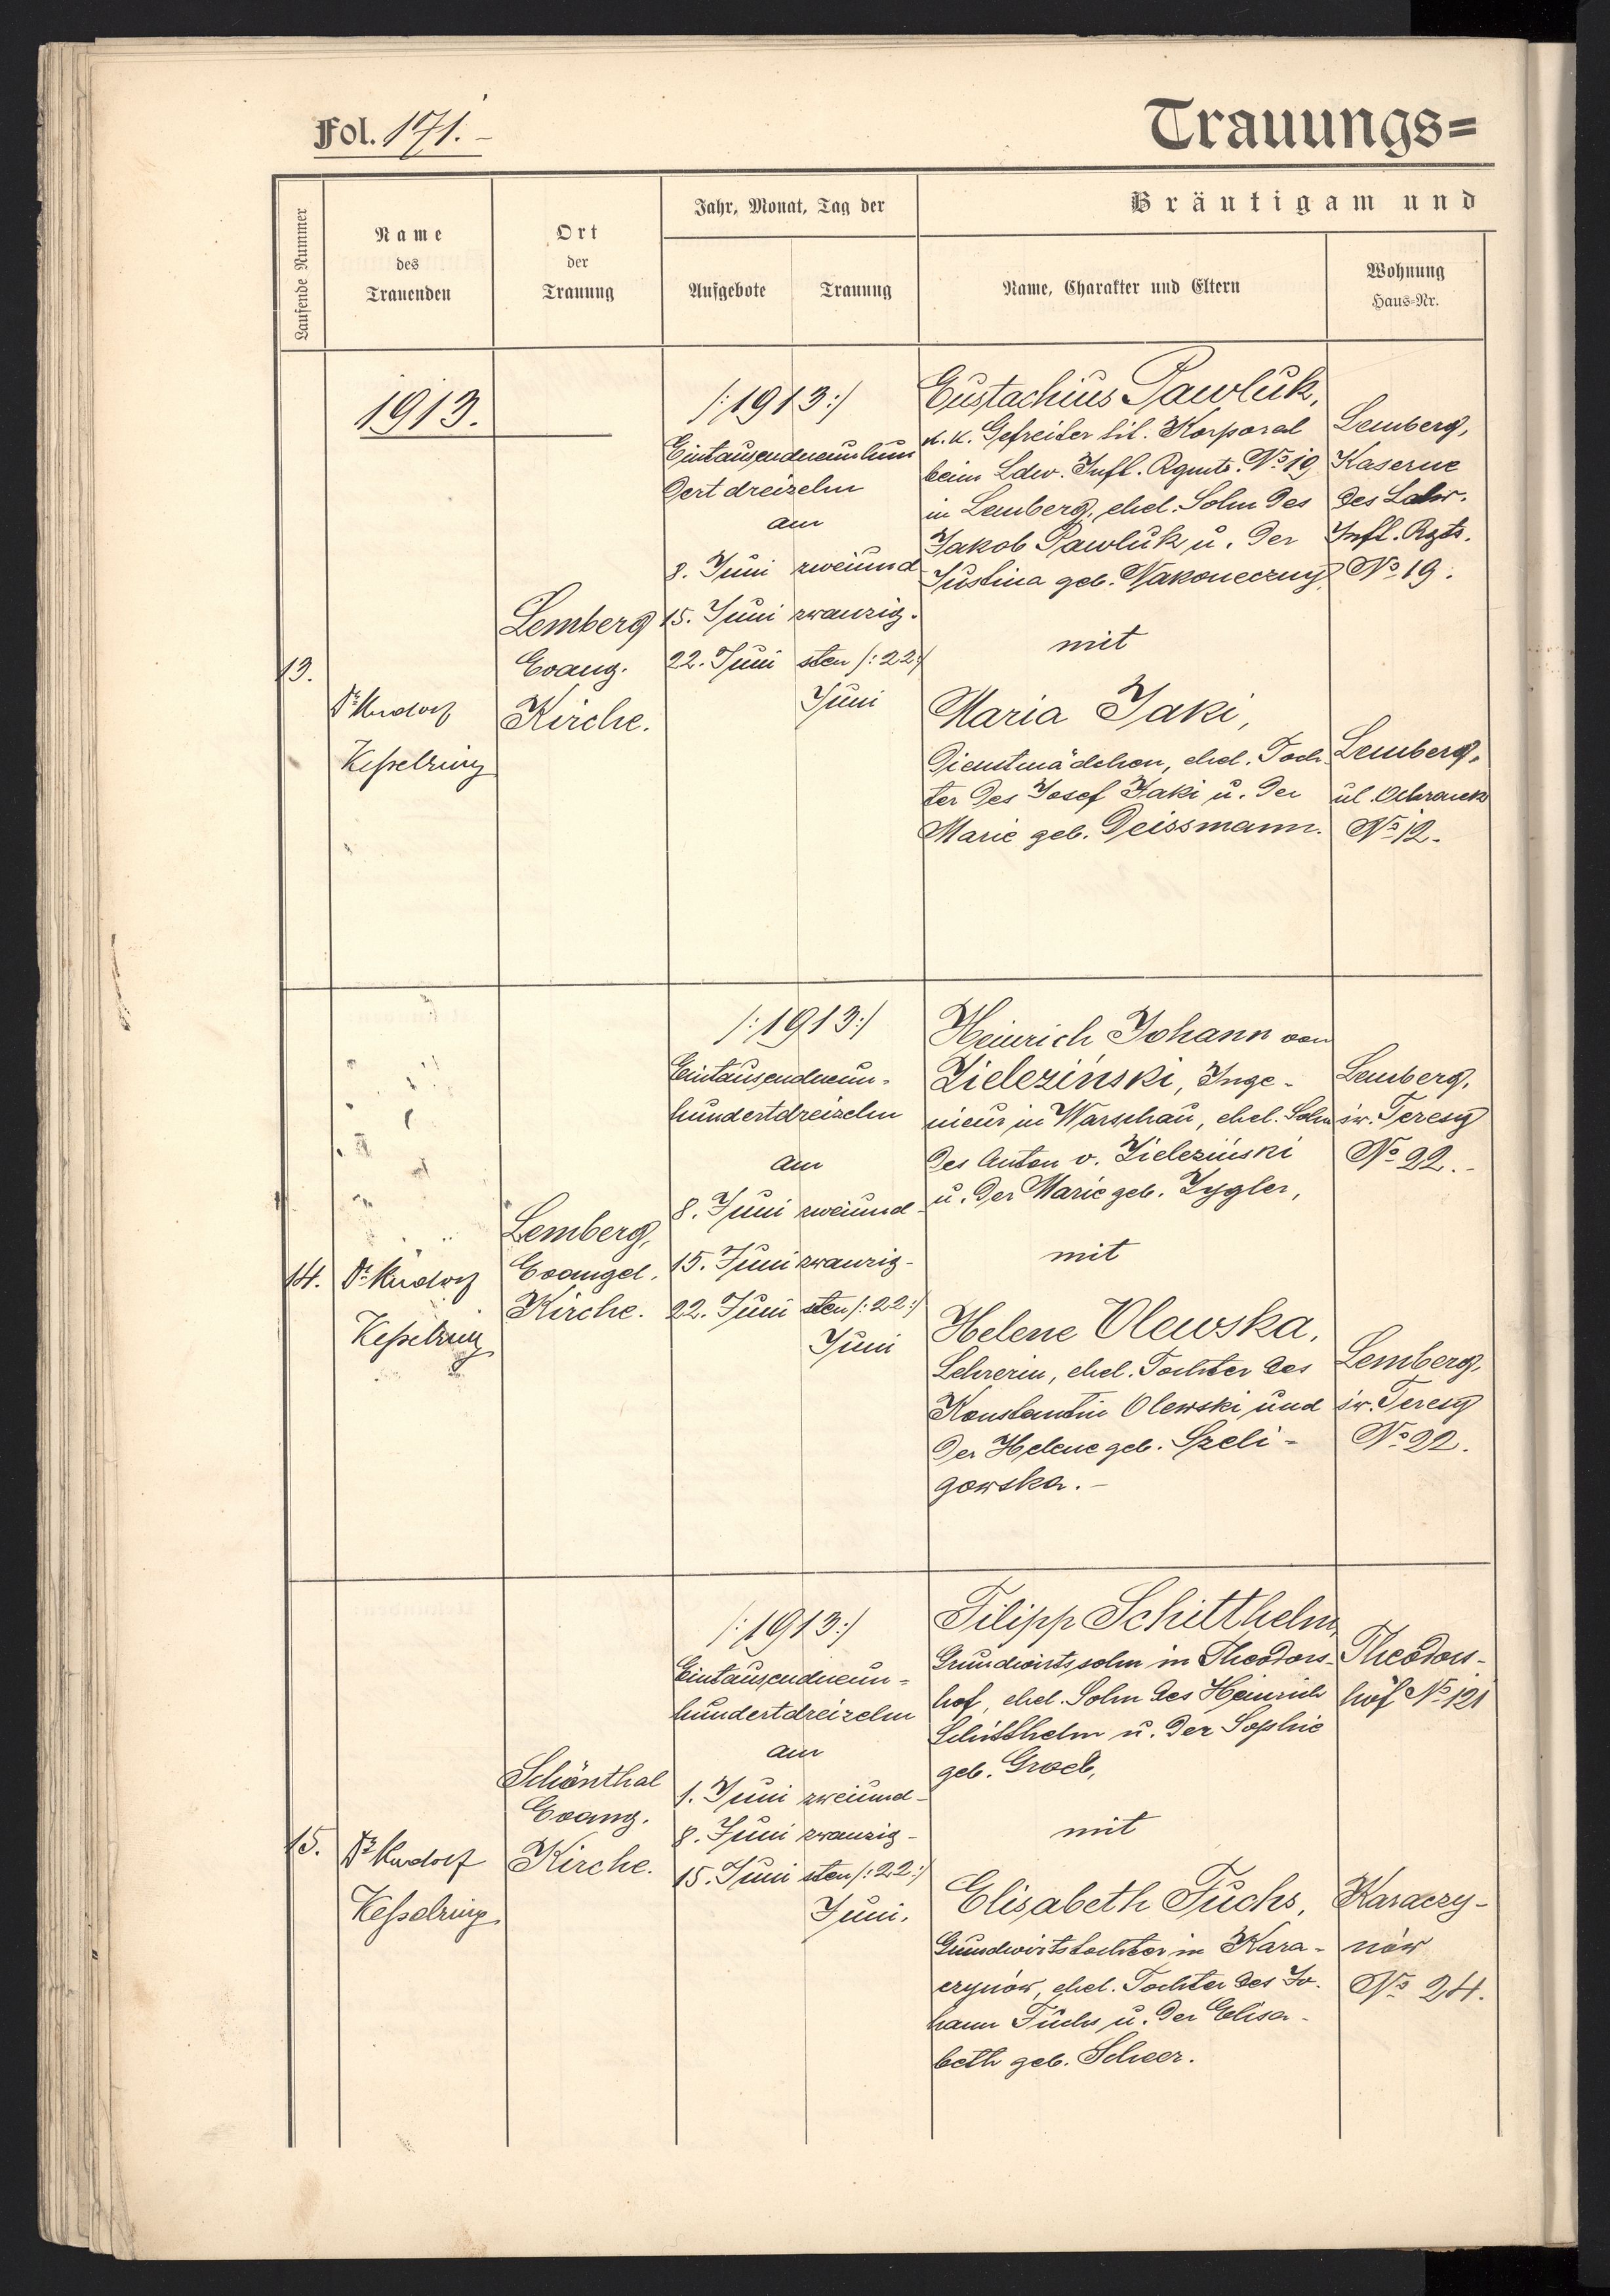 Fol. 171.-
Trauungs=
Laufende Nummer
Name
des
Trauenden
Ort
der
Trauung
Jahr, Monat, Tag der
Aufgebote
Trauung
Bräutigam und
Name, Charakter und Eltern
Wohnung
Haus=Nr.
1913.
13.
Dr Rudolf
Keßelring
Lemberg
Evang.
Kirche.
/:1913:/
Eintausendneunhun
dert dreizehn
am
8. Juni zweiund
15. Juni zwanzig-
22. Juni sten /:22:/
Juni
Eustachius Pawluk,
k. k. Gefreiter tit. Korporal
beim Ldw. Inft. Rgmte. No 19
in Lemberg, ehel. Sohn des
Jakob Pawluk u. der
Justina geb. Nakoneczny,
mit
Maria Jaki,
Dienstmädchen, ehel. Toch-
ter des Josef Jaki u. der
Marie geb. Deissmann.
Lemberg,
Kaserne
des Ldw.
Inft. Rgts.
No 19.
Lemberg,
ul. Ochronek
No 12.
14.
Dr Rudolf
Keßelring
Lemberg,
Evangel.
Kirche.
/:1913:/
Eintausendneun-
hundertdreizehn
am
8. Juni zweiund-
15. Juni zwanzig-
22. Juni sten /:22:/
Juni
Heinrich Johann von
Zieleziński, Inge-
nieur in Warschau, ehel. Sohn
des Anton v. Zieleziński
u. der Marie geb. Zygler,
mit
Helene Olewska,
Lehrerin, ehel. Tochter des
Konstantin Olewski und
der Helene geb. Szeli-
gowska.-
Lemberg,
św. Teresy
No 22.-
Lemberg,
św. Teresy
No 22.
15.
Dr Rudolf
Keßelring
Schönthal
Evang.
Kirche.
/:1913:/
Eintausendneun-
hundertdreizehn
am
1. Juni zweiund-
8. Juni zwanzig-
15. Juni sten /:22:/
Juni.
Filipp Schitthelm,
Grundwirtssohn in Theodors-
hof, ehel. Sohn des Heinrich
Schitthelm u. der Sophie
geb.
mit
Elisabeth Fuchs,
Grundwirtstochter in Kara-
czynów, ehel. Tochter des Jo-
hann Fuchs u. der Elisa-
beth geb. Scheer.
Theodors-
hof No 121
Karaczy-
nów
No 24.